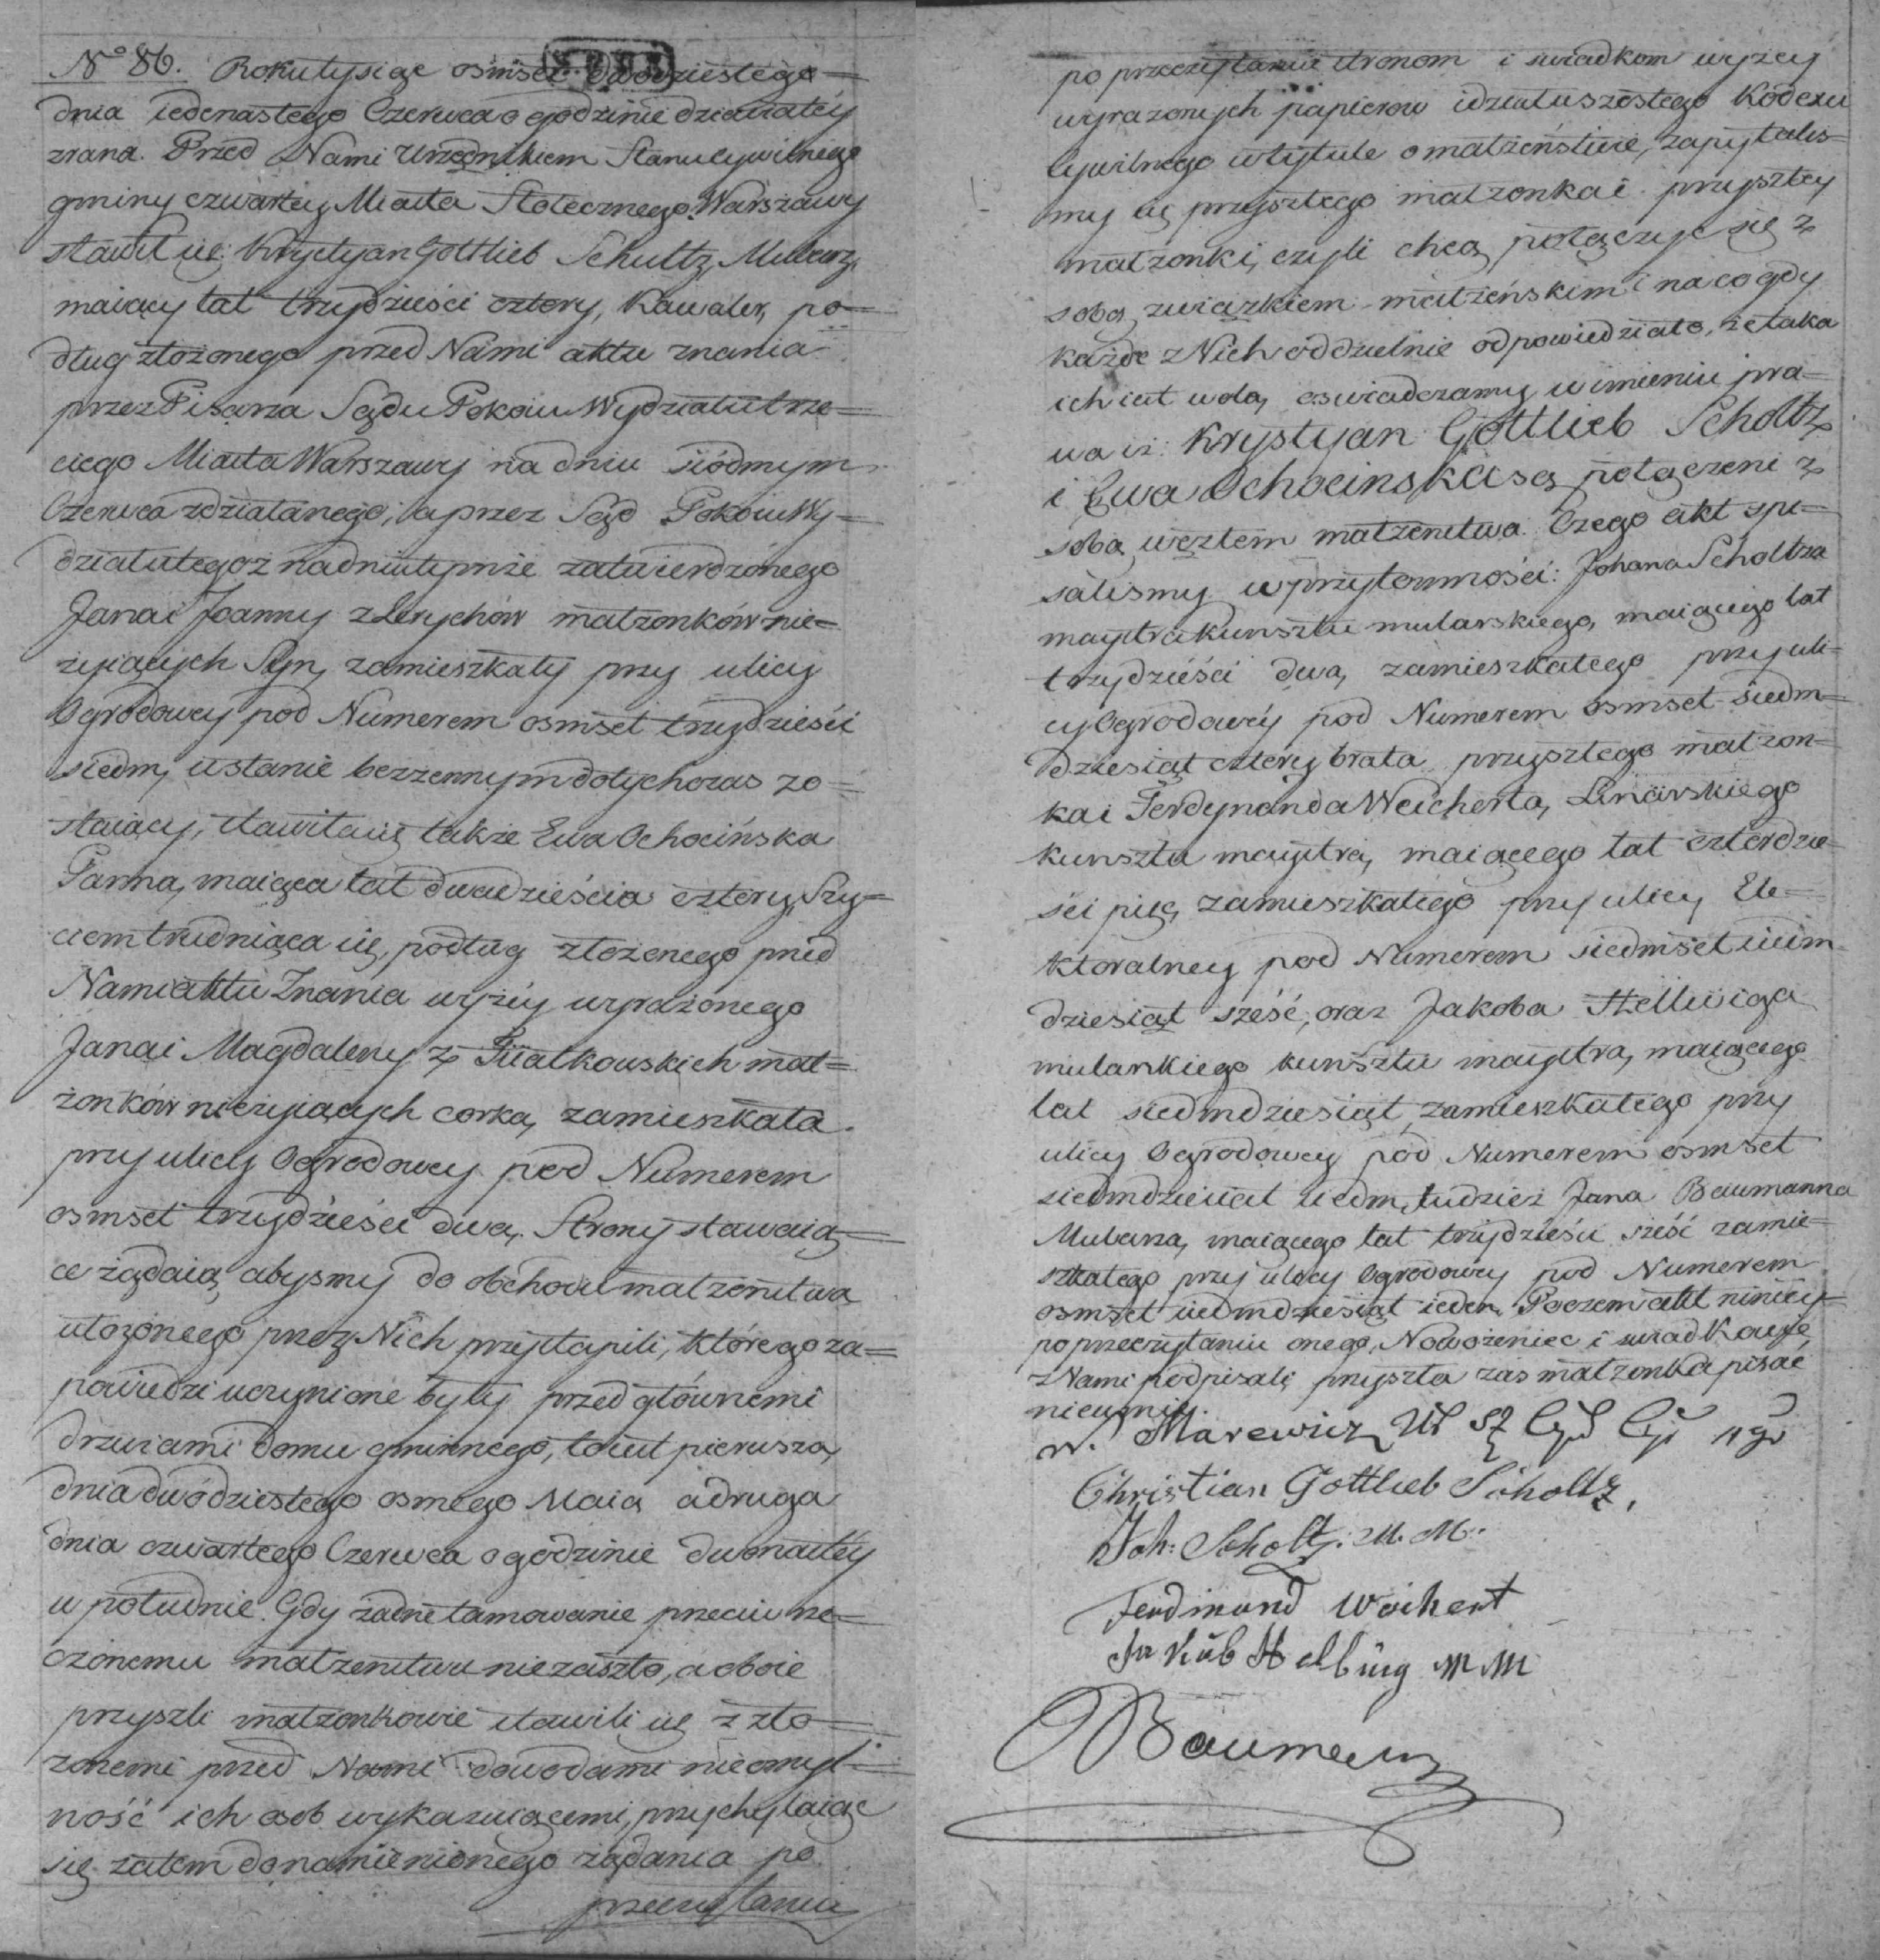 N° 86. Roku tysiąc osmset dwodziestego
dnia iedenastego Czerwca o godzinie dziewiątey
zrana. Przed Nami Urzędnikiem Stanu cywilnego
gminy czwartey Miasta Stołecznego Warszawy
stawił się: Krystyan Gottlieb Schultz, Mularz,
maiący lat trzydzieści cztery, Kawaler, po=
dług złożonego przed Nami aktu znania
przez Pisarza Sądu Pokoiu Wydziału trze=
ciego Miasta Warszawy na dniu siódmym
Czerwca zdziałanego, a przez Sąd Pokoiu Wy=
działu tegoż na dniu tymże zatwierdzonego
Jana i Joanny z Lerychów małzonków nie=
żyiących Syn, zamieszkały przy ulicy
Ogrodowey pod Numerem osmset trzydzieści
siedm, w stanie bezżennym dotychczas zo=
staiący, stawiła się także Ewa Ochocińska
Panna, maiąca lat dwadzieścia cztery, Szy=
ciem trudniąca się, podług złożonego przed
Nami aktu Znania wyżéy wyrażonego
Jana i Magdaleny z Fiiałkowskich mał=
żonków nieżyiących corka, zamieszkała
przy ulicy Ogrodowey pod Numerem
osmset trzydzieści dwa. Strony stawaią=
ce żądaią, abyśmy do obchodu małzeństwa
ułożonego przez Nich przystąpili, którego za=
powiedzi uczynione były przed głównemi
drzwiami domu gminnego, to iest pierwsza,
dnia dwódziestego osmego Maia a druga
dnia czwartego Czerwca o godzinie dwonastéy
w południe. Gdy żadne tamowanie przeciw rze=
czonemu małżeństwu nie zaszło, a oboie
przyszli małzonkowie stawili się z zło=
żonemi przed Nami dowodami nieomyl=
ność ich osob wykazuiącemi, przychylaiąc
się zatem do namienionego żądania po
przeczytaniu
po przeczytaniu stronom i swiadkom wyżey
wyrazonych papierow i działu szóstego Kodexu
Cywilnego w tytule o małżeństwie, zapytaliś=
my się przyszłego małzonka i przyszłey
małzonki, czyli chcą połączyć się z
sobą związkiem małżeńskim i na co gdy
każde z Nich oddzielnie odpowiedziało, że taka
ich iest wola, oświadczamy w imieniu pra=
wa iż: Krystyan Gottlieb Scholtz
i Ewa Ochocinska są połączeni z
sobą węzłem małżeństwa. Czego akt spi=
saliśmy w przytomności: Johana Scholtza
maystra kunsztu mularskiego, maiącego lat
trzydzieści dwa, zamieszkałego przy uli=
cy Ogrodowéy pod Numerem osmset siedm=
dziesiąt cztery brata przyszłego małzon=
ka i Ferdynanda Weicherta,
kunsztu maystra, maiącego lat czterdzie=
ści pięć, zamieszkałego przy ulicy Ele=
ktoralney pod Numerem siedmset siedm=
dziesiąt sześć, oraz Jakoba Hellwiga
mularskiego kunsztu maystra, maiącego
lat siedmdziesiąt, zamieszkałego przy
ulicy Ogrodowey pod Numerem osmset
siedmdziesiąt siedm, tudzież Jana Baumanna
Mularza, maiącego lat trzydzieści sześć zamie=
szkałego przy ulicy Ogrodowey pod Numerem
osmset siedmdziesiąt ieden. Poczem akt niniey=
po przeczytaniu onego, Nowożeniec i swiadkowie
z Nami podpisali, przyszła zaś małżonka pisać
nieumie.
W. Marewicz
Christian Gottlieb Scholtz,
Joh: Scholtz. M. M.
Ferdinand Weichert
Jakub Helbing MM
Baumann